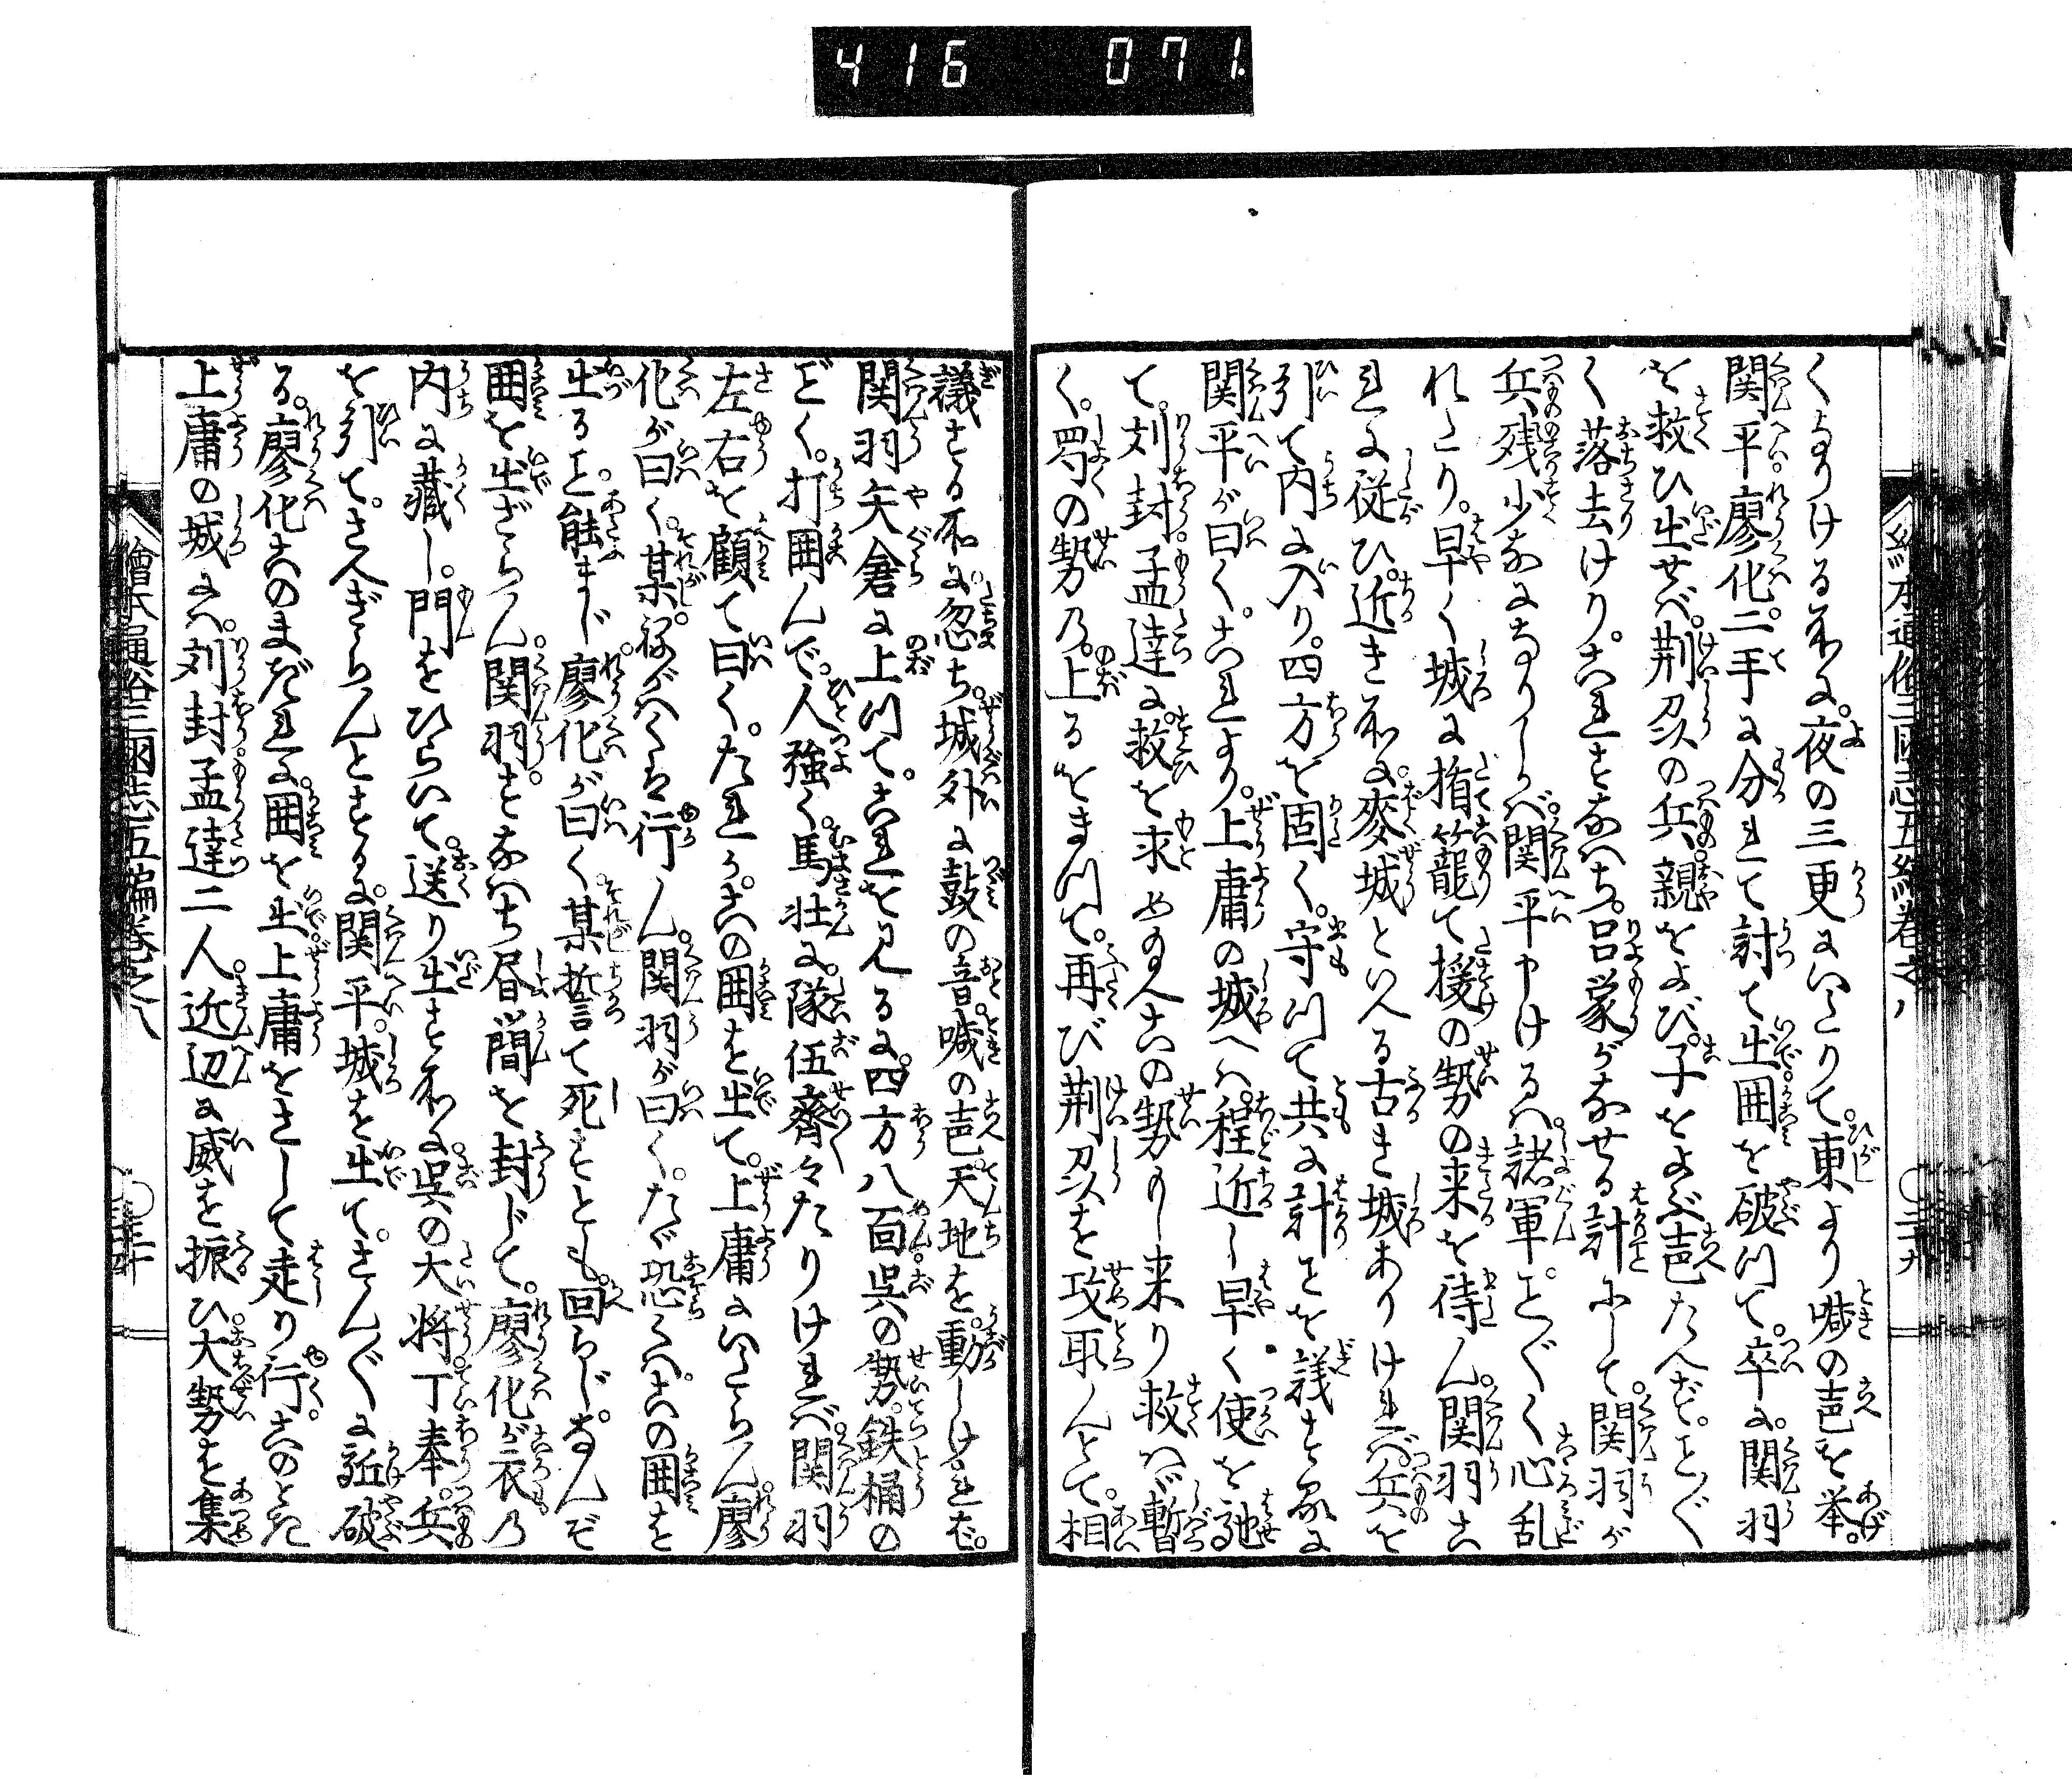 416 071.
繪本通俗三國志五編巻之八 ○ 三十九
くなりける所に。夜の三更にいたりて。東より喊の声を挙。
関平。廖化。二手に分れて討て出。囲を破つて。卒に。関羽
を救ひ出せば。荆州の兵。親をよび。子をよぶ声たえず。こと〴〵
く落去けり。これすなはち。呂蒙がなせる計にして。関羽が
兵残少なになりしかば。関平申けるは。諸軍ことごとく心乱
れたり。早く城に楯籠て援の勢の来を待ん。関羽こ
れに従ひ。近き所に。麥城といへる古き城ありければ。兵を
引て内に入り。四方を固く。守つて共に計を議する
関平が曰く。これより。上庸の城へは。程近し早く使を馳
て。刘封。孟達に。救を求め給へこの勢もし来り救はゞ。暫
く。蜀の勢乃。上るをまつて。再び荆州を攻取んとて。相
議する所に。忽ち。城外に鼓の音。喊の声。天地を。動しければ。
関羽矢倉に上つて。これを見るに。四方八面呉の勢。鉄桶の
ごく。打囲んで。人強く。馬壮に。隊伍齊々たりければ。関羽
左右を顧て曰く。たれか。この囲を出て。上庸にいたらん。廖
化が曰く。某。ねがはくは行ん。関羽が曰く。たゞ恐くは。この囲を
出ること。能まじ廖化が曰く。某誓て死すとも。回らじ。なんぞ
囲を出ざらん。関羽。すなはち昼間を封じて。廖化が衣乃
内に藏し。門をひらいて。送り出す所に。呉の大将。丁奉。兵
を引て。さへぎらんとするに。関平。城を出て。さん〴〵に詎破
る。廖化このまだれに。囲を出上庸をさして走り行。このとき
上庸の城には。刘封孟達二人。近辺に威を振ひ。大勢を集
繪本通俗三國志五編巻之八 ○ 三十